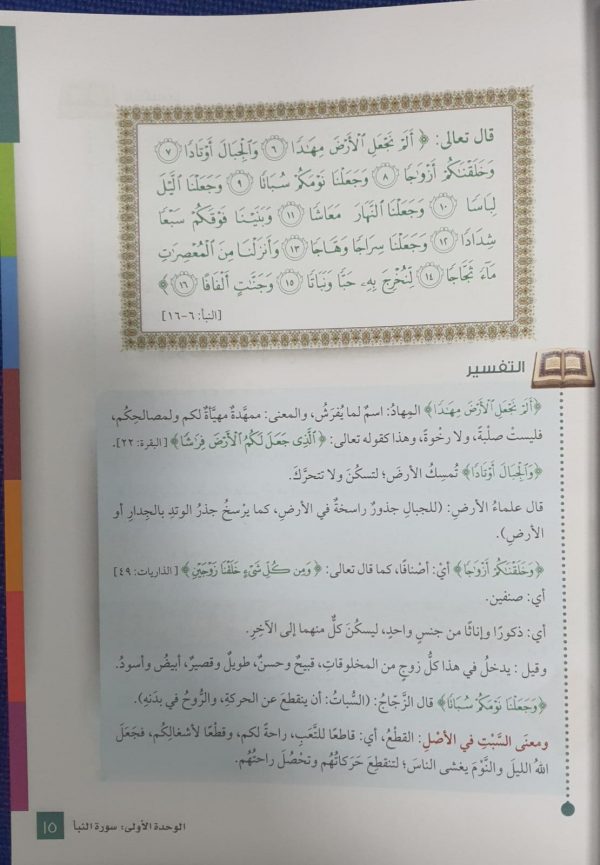 قال تعالى: ﴿ أَلَمْ نَجْعَلِ ٱلْأَرْضَ مِهَٰدًا ٦ وَٱلْجِبَالَ أَوْتَادًا ٧
وَخَلَقْنَٰكُمْ أَزْوَٰجًا ٨ وَجَعَلْنَا نَوْمَكُمْ سُبَاتًا ٩ وَجَعَلْنَا ٱلَّيْلَ
لِبَاسًا ١٠ وَجَعَلْنَا ٱلنَّهَارَ مَعَاشًا ١١ وَبَنَيْنَا فَوْقَكُمْ سَبْعًا
شِدَادًا ١٢ وَجَعَلْنَا سِرَاجًا وَهَّاجًا ١٣ وَأَنزَلْنَا مِنَ ٱلْمُعْصِرَٰتِ
مَآءً ثَجَّاجًا ١٤ لِّنُخْرِجَ بِهِۦ حَبًّا وَنَبَاتًا ١٥ وَجَنَّٰتٍ أَلْفَافًا ١٦ ﴾
[النبأ: ٦-١٦]
التفسير
﴿أَلَمْ نَجْعَلِ ٱلْأَرْضَ مِهَٰدًا﴾ المِهادُ: اسمٌ لما يُفرَشُ، والمعنى: ممهَّدةً مهيَّأةً لكم ولمصالحِكُم،
فليستْ صلْبةً، ولا رخْوةً، وهذا كقوله تعالى: ﴿ٱلَّذِى جَعَلَ لَكُمُ ٱلْأَرْضَ فِرَٰشًا﴾ [البقرة: ٢٢].
﴿وَٱلْجِبَالَ أَوْتَادًا﴾ تُمسِكُ الأرضَ؛ لتسكُنَ ولا تتحرَّكَ.
قال علماءُ الأرضِ: (للجبالِ جذورٌ راسخةٌ في الأرضِ، كما يرْسخُ جذرُ الوتدِ بالجِدارِ أو
الأرضِ).
﴿وَخَلَقْنَٰكُمْ أَزْوَٰجًا﴾ أيْ: أصْنافًا، كما قال تعالى: ﴿وَمِن كُلِّ شَىْءٍ خَلَقْنَا زَوْجَيْنِ﴾ [الذاريات: ٤٩]
أي: صنفين.
أي: ذكورًا وإناثًا من جنسٍ واحدٍ، ليسكُنَ كلٌّ منهما إلى الآخِرِ.
وقيل: يدخلُ في هذا كلُّ زوجٍ من المخلوقاتِ، قبيحٌ وحسنٌ، طويلٌ وقصيرٌ، أبيضُ وأسودُ.
﴿وَجَعَلْنَا نَوْمَكُمْ سُبَاتًا﴾ قال الزَّجَّاجُ: (السُّباتُ: أن ينقطعَ عن الحركةِ، والرُّوحُ في بدَنِهِ).
ومعنَى السَّبْتِ في الأصْلِ: القطْعُ، أي: قاطعًا للتَّعَبِ، راحةً لكم، وقطْعًا لأشغالِكُم، فجَعَلَ
اللهُ الليلَ والنَّوْمَ يغشى الناسَ؛ لتنقطِعَ حَرَكاتُهُم وتحْصُلَ راحتُهُم.
الوحدة الأولى: سورة النبأ
١٥